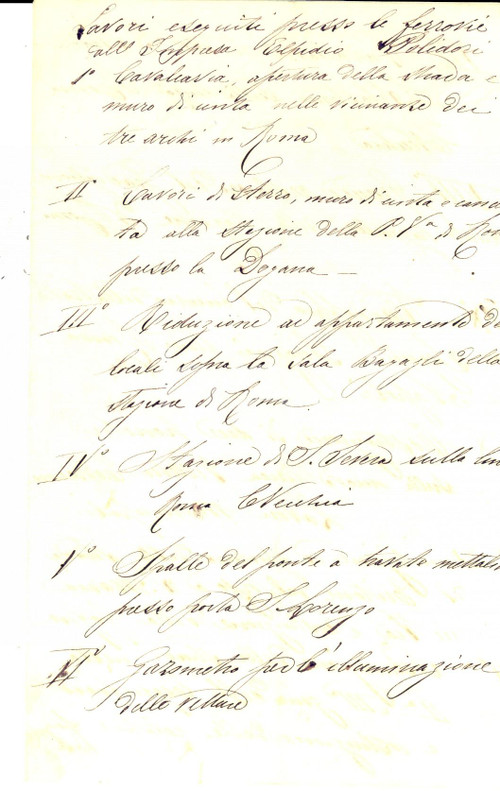 Lavori eseguiti presso le ferrovie
all'Impresa Elpidio Polidori
I° Cavalcavia, apertura della strada e
muro di cinta nelle vicinanze dei
tre archi in Roma
II° Lavori di sterro, muro di cinta e
ta alla Stazione della P. Va di Rom
presso la Dogana —
III° Riduzione ad appartamento d
locali sopra la sala Bagagli della
stazione di Roma.
IV° Stazione di S. Severa sulla lin
Roma CVecchia
V° Spalle del ponte a travate metall
presso porta S. Lorenzo
VI° Gazometro per l'illuminazione
delle vetture